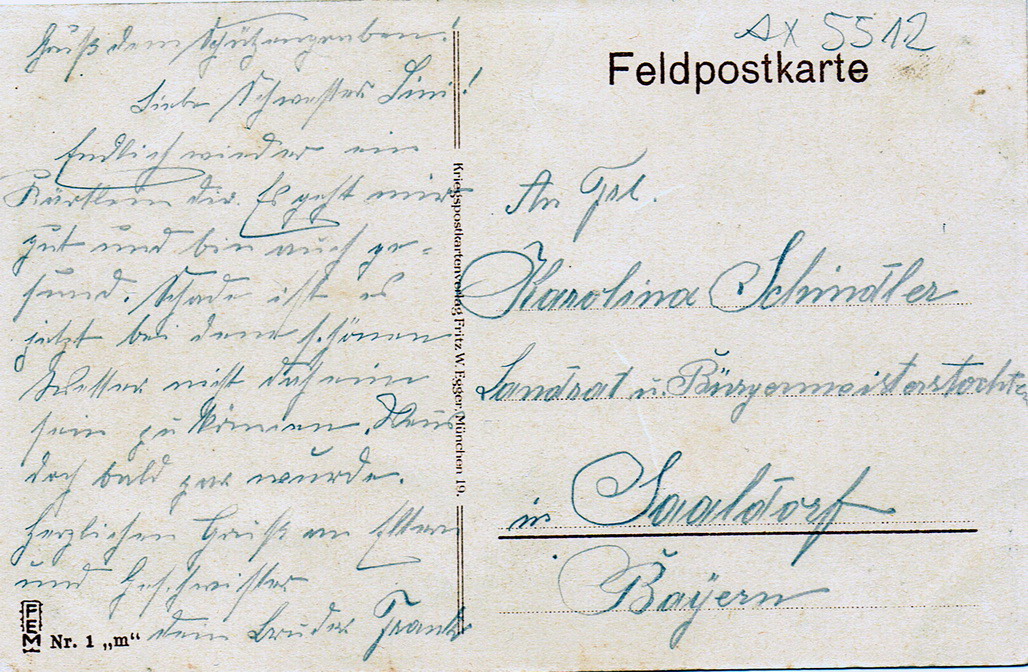 Gruß dem Schützengraben!
Liebe Schwester Lini!
Endlich wieder ein
Kärtlein dir. Es geht mir
gut und bin auch ge=
sund. Schade ist es
jetzt bei dem schönen
Wetter nicht daheim
sein zu können. Wens
doch bald gar wurde.
Herzlichen Gruß an Eltern
und Geschwister
dein Bruder Frank
FEM Nr. 1 „m“
Kriegspostkartenverlag Fritz W. Egger, München 19.
AX 5512
Feldpostkarte
An Frl.
Karolina Schindler
Landrat u. Bürgermeisterstochter
in Saaldorf
Bayern